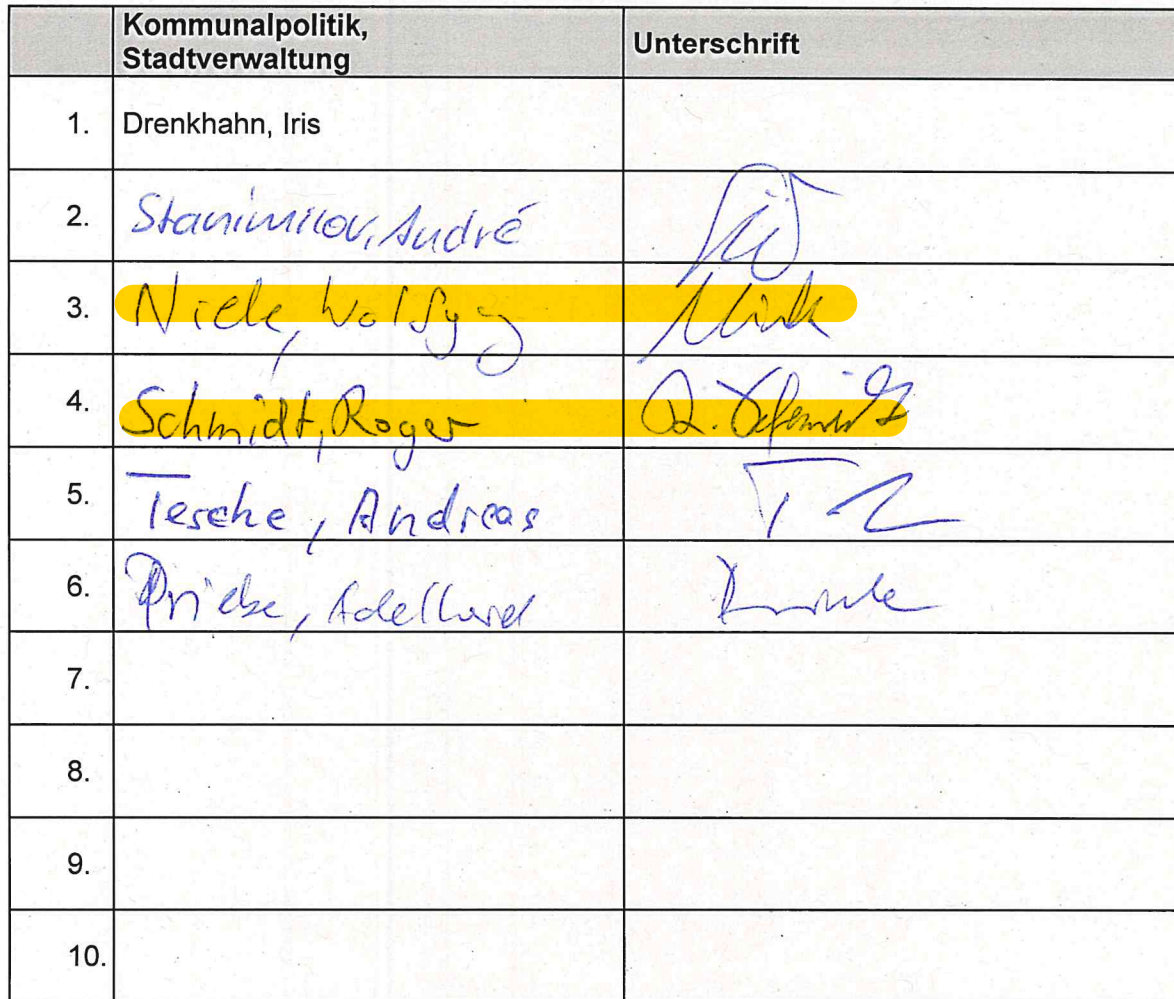 Kommunalpolitik,
Stadtverwaltung
Unterschrift
1. Drenkhahn, Iris
2. Stanimirov, André
3. Niele, Wolfgang
4. Schmidt, Roger R. Schmidt
5. Tesche, Andreas
6. Priebe, Adelhard
7.
8.
9.
10.